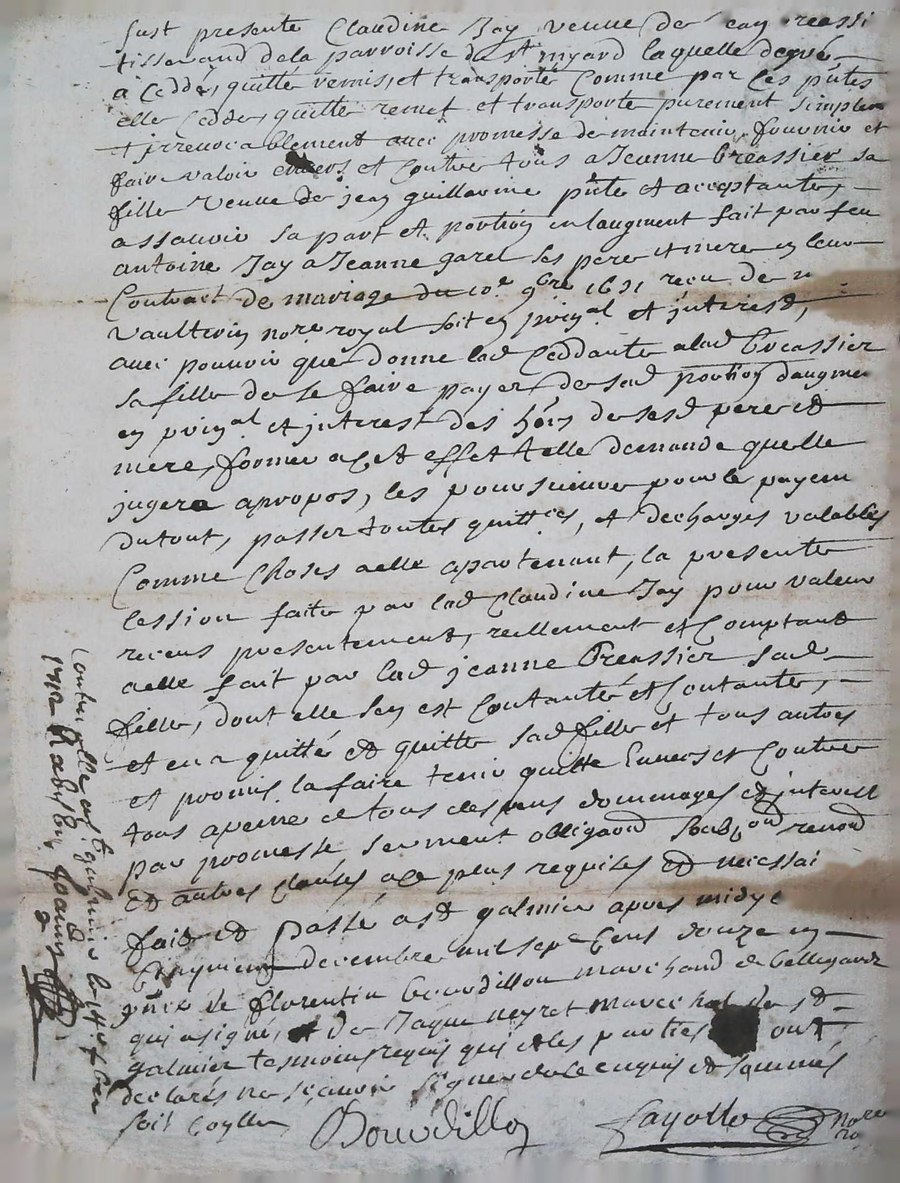 fust presente Claudine Jay veuve de jean breassi
tisserand de la parroisse de st myard laquelle de gré
à Ceddé, quitté remis, et transporté Comme par Ces pntes
elle Cedde, quitte remet et transporte purement simplem
et irrevocablement avec promesse de maintenir, fournir et
faire valoir envers et Contre tous a Jeanne breassier sa
fille veuve de jean guillarme pnte et acceptante,
assavoir sa part et portion en laugment fait par feu
antoine Jay a Jeanne garel ses pere et mere en leur
Contract de mariage du 10e 9bre 1651 receu de
vaultrin nore royal soit en prinal et interest,
avec pouvoir que donne lad Ceddante a lad breassier
sa fille de se faire payer de sad portion daugme
en prinal et interest des hers de sesd pere et
mere, former a cet effet telle demande quelle
jugera apropos, les poursuivre pour le payem
du tout, passer toutes quittces, et decharges valables
Comme Choses a elle apartenant, la presente
Cession faite par lad Claudine Jay pour valeur
receus presentement, reellement et Comptant
a elle fait par lad jeanne breassier sad
fille, dont elle sen est Contantée et Contante,
et en a quitté et quitte sad fille et tous autres
et promis la faire tenir quitte Envers et Contre
tous a peine de tous despens dommages et interest
par promesse serment obligaon soubmon renond
et autres Clauses a ce plus requises et necessai
fait et passé a st galmier apres midy
Cinquieme decembre mil sept Cens douze en
pnce de florentin bourdillon marchand de bellegarde
qui a signé, et de Jaque neyret marechal de st
galmier tesmoins requis qui et les parties ont
declarés ne sçavoir signer de ce enquis et sommés
soit Conllé Bourdillon fayolle nore
Contrerollé a st galmier le 14e xber
1712